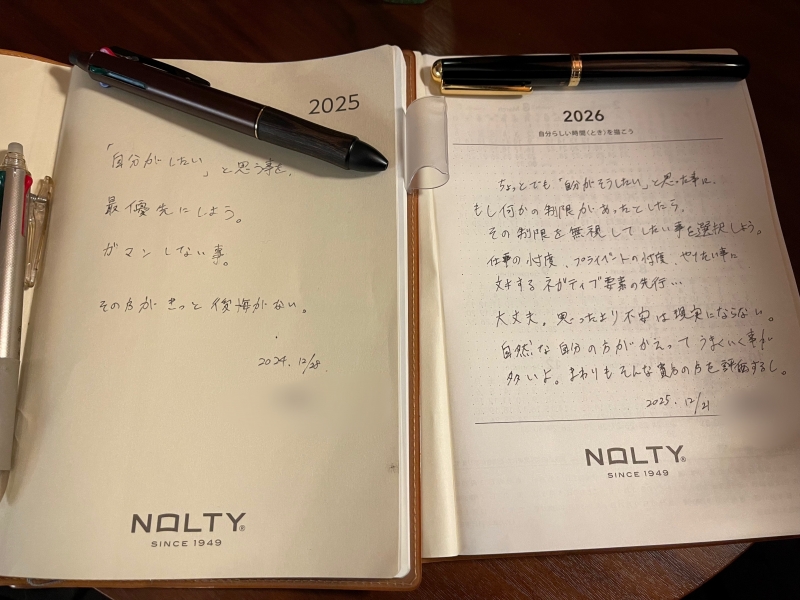 2025
「自分がしたい」と思う事を、
最優先にしよう。
ガマンしない事。
その方がきっと後悔がない。
2024.12/28.
NOLTY®
SINCE 1949
2026
自分らしい時間〈とき〉を描こう
ちょっとでも「自分がそうしたい」と思った事に、
もし何かの制限があったとしたら、
その制限を無視してしたい事を選択しよう。
仕事の忖度、プライベートの忖度、やりたい事に
対するネガティブ要素の先行…
大丈夫。思ったより不安は現実にならない。
自然な自分の方がかえってうまくいく事が
多いよ。まわりもそんな貴方の方を評価するし。
2025.12/21
NOLTY®
SINCE 1949